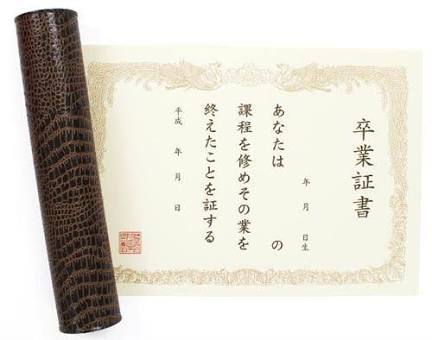 卒業証書
年 月 日生
あなたは の
課程を修めその業を
終えたことを証する
平成 年 月 日